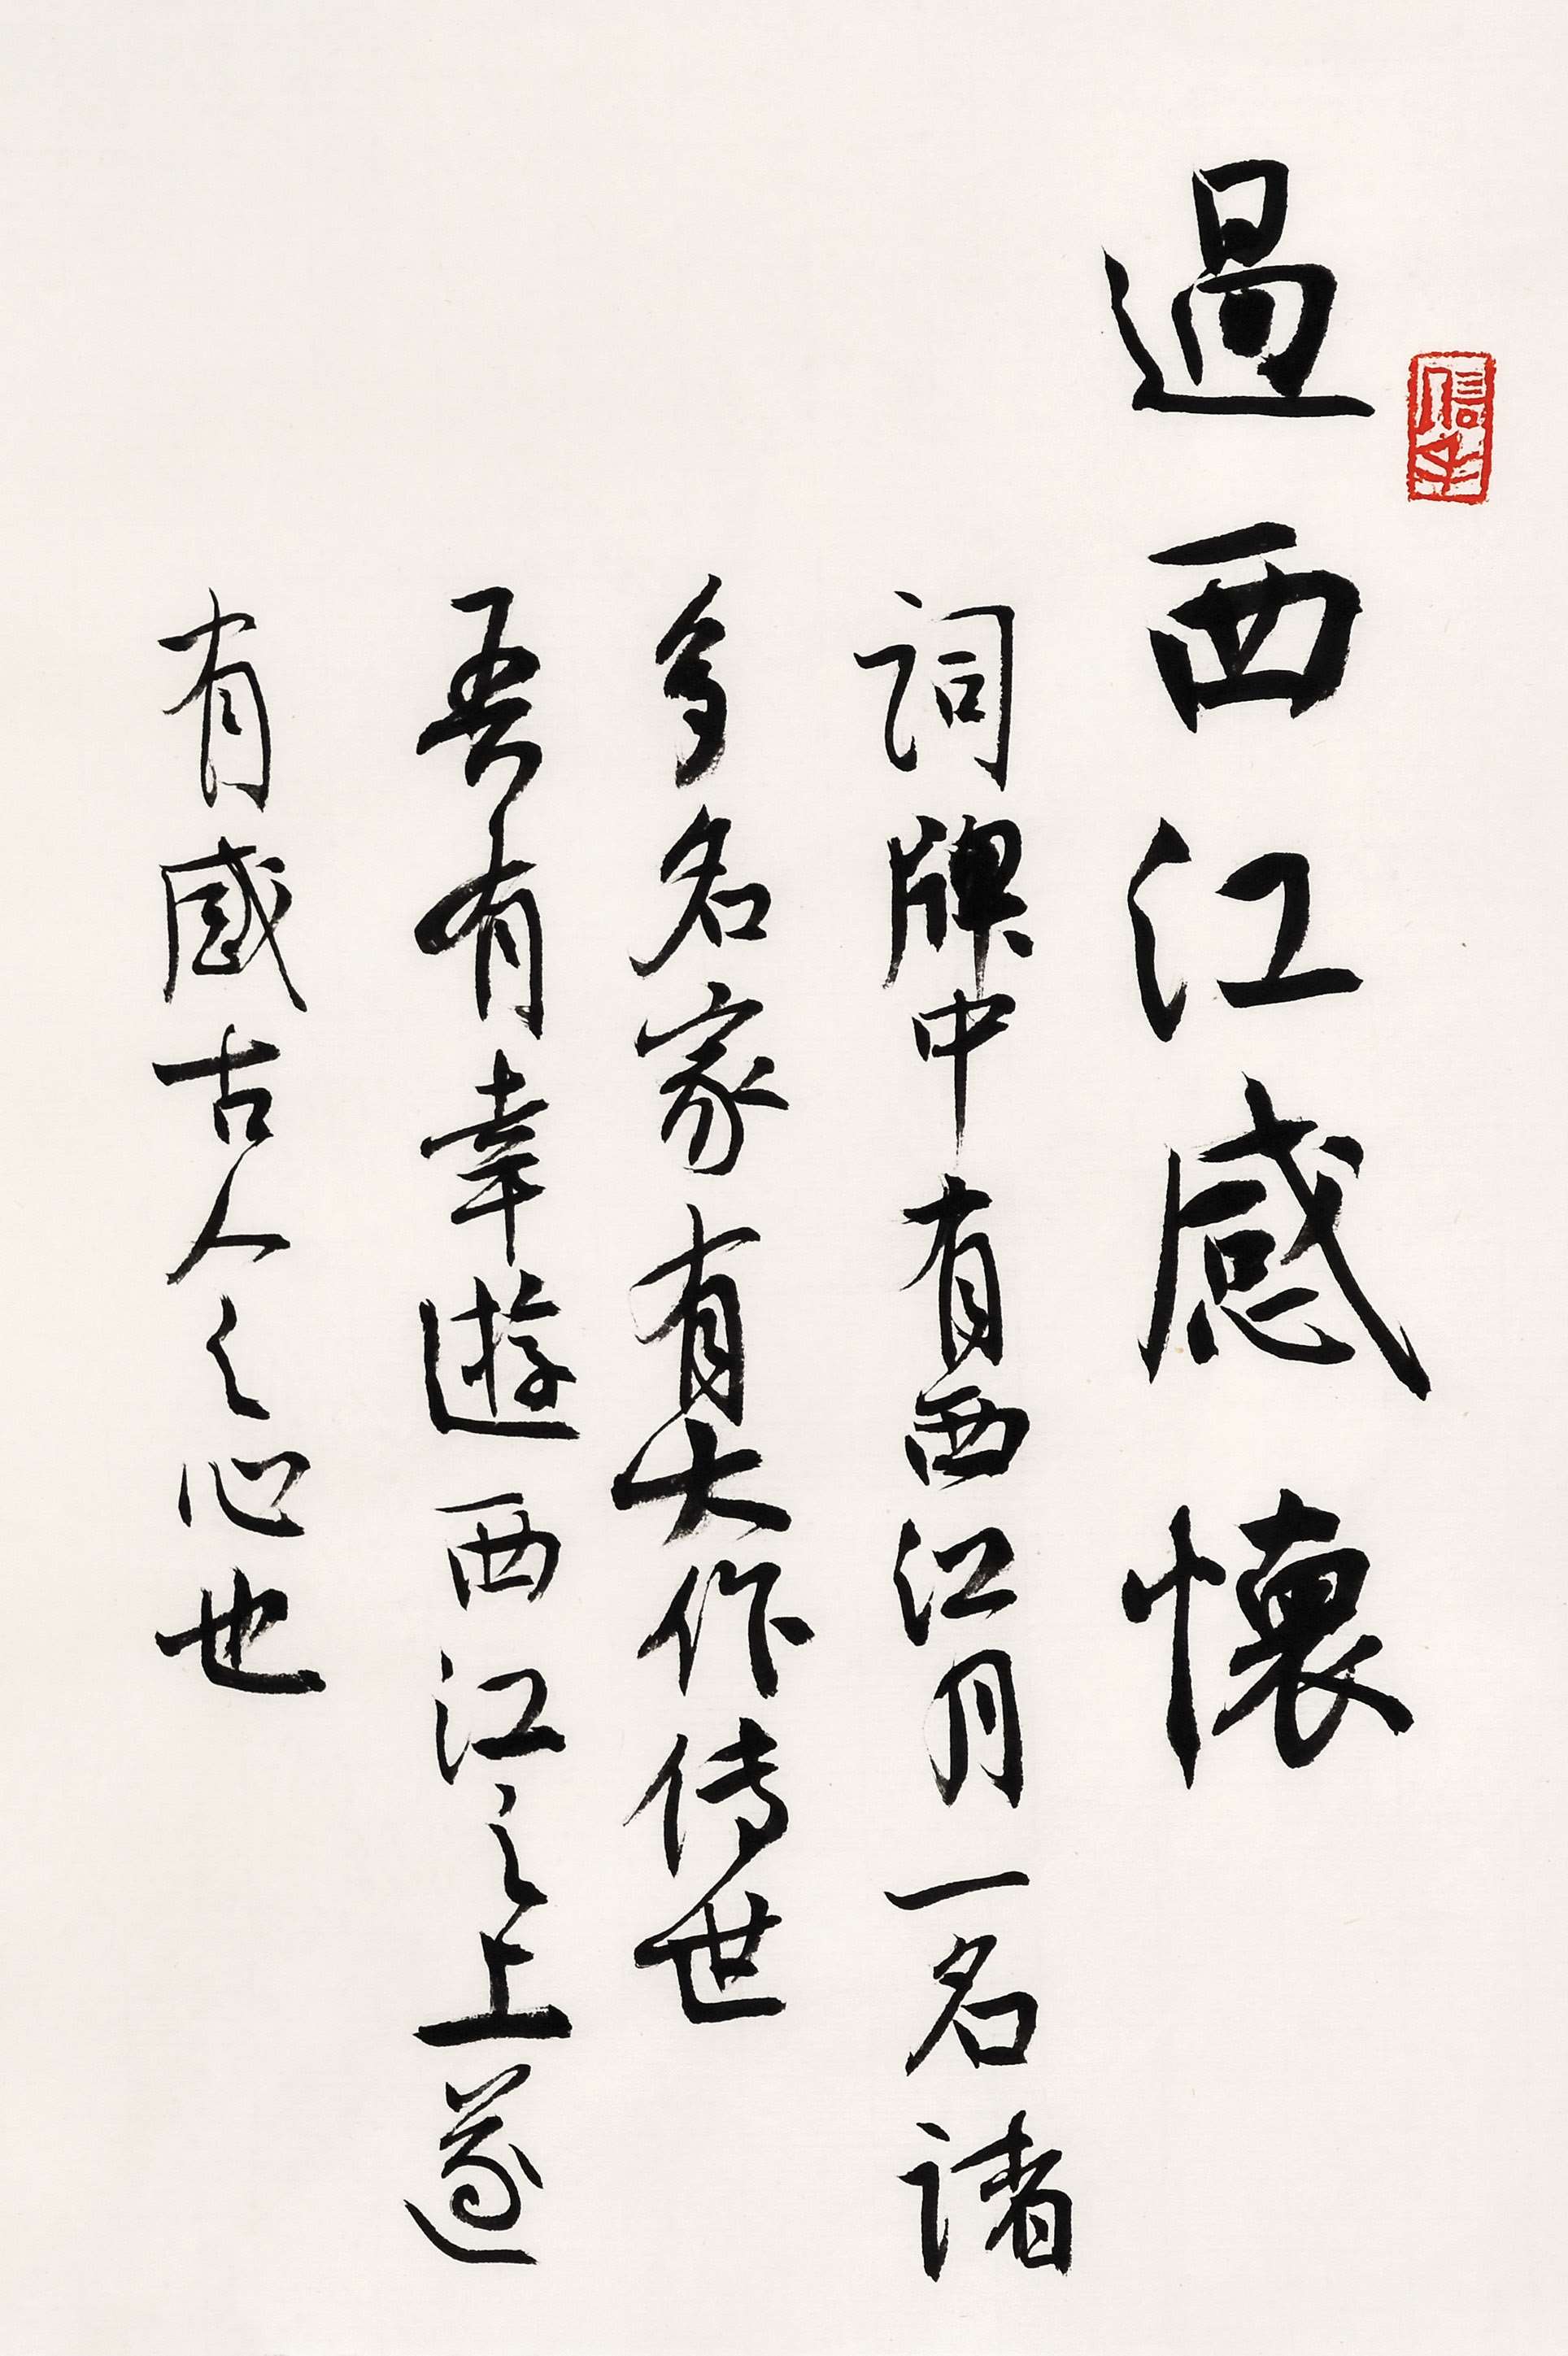 過西江感懷
词牌中有西江月一名诸
多名家有大作传世
吾有幸遊西江之上遂
有感古人之心也
信手